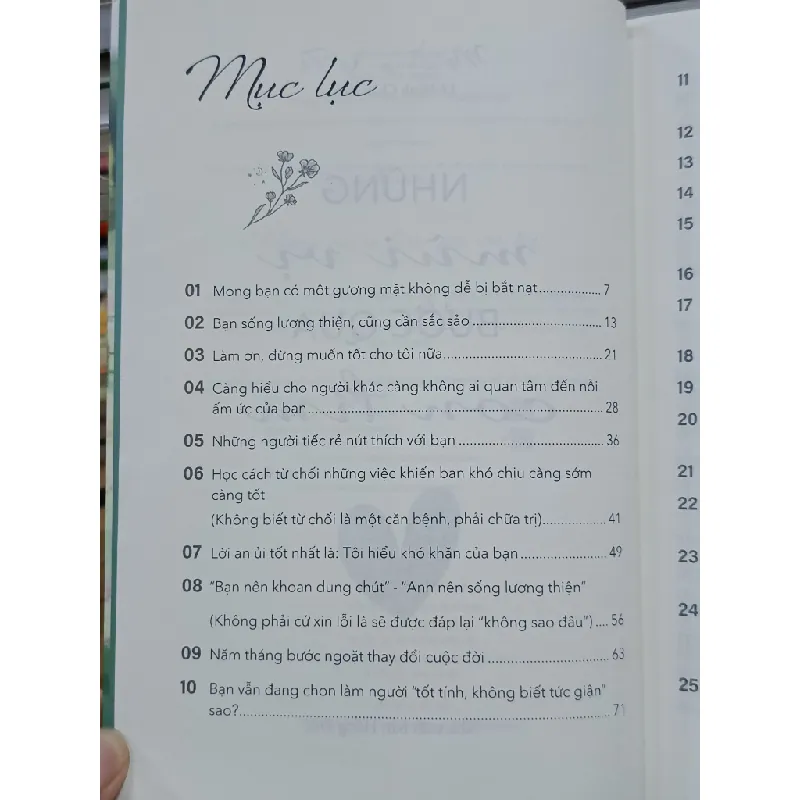 Mục lục
01 Mong bạn có một gương mặt không dễ bị bắt nạt.................. 7
02 Bạn sống lương thiện, cũng cần sắc sảo .................................... 13
03 Làm ơn, đừng muốn tốt cho tôi nữa............................................ 21
04 Càng hiểu cho người khác càng không ai quan tâm đến nỗi
ấm ức của bạn ................................................................................ 28
05 Những người tiếc rẻ nút thích với bạn ........................................ 36
06 Học cách từ chối những việc khiến bạn khó chịu càng sớm
càng tốt
(Không biết từ chối là một căn bệnh, phải chữa trị).................. 41
07 Lời an ủi tốt nhất là: Tôi hiểu khó khăn của bạn ........................ 49
08 "Bạn nên khoan dung chút" - "Anh nên sống lương thiện"
(Không phải cứ xin lỗi là sẽ được đáp lại "không sao đâu") .... 56
09 Năm tháng bước ngoặt thay đổi cuộc đời .................................. 63
10 Bạn vẫn đang chọn làm người "tốt tính, không biết tức giận"
sao?.................................................................................................. 71
11
12
13
14
15
16
17
18
19
20
21
22
23
24
25